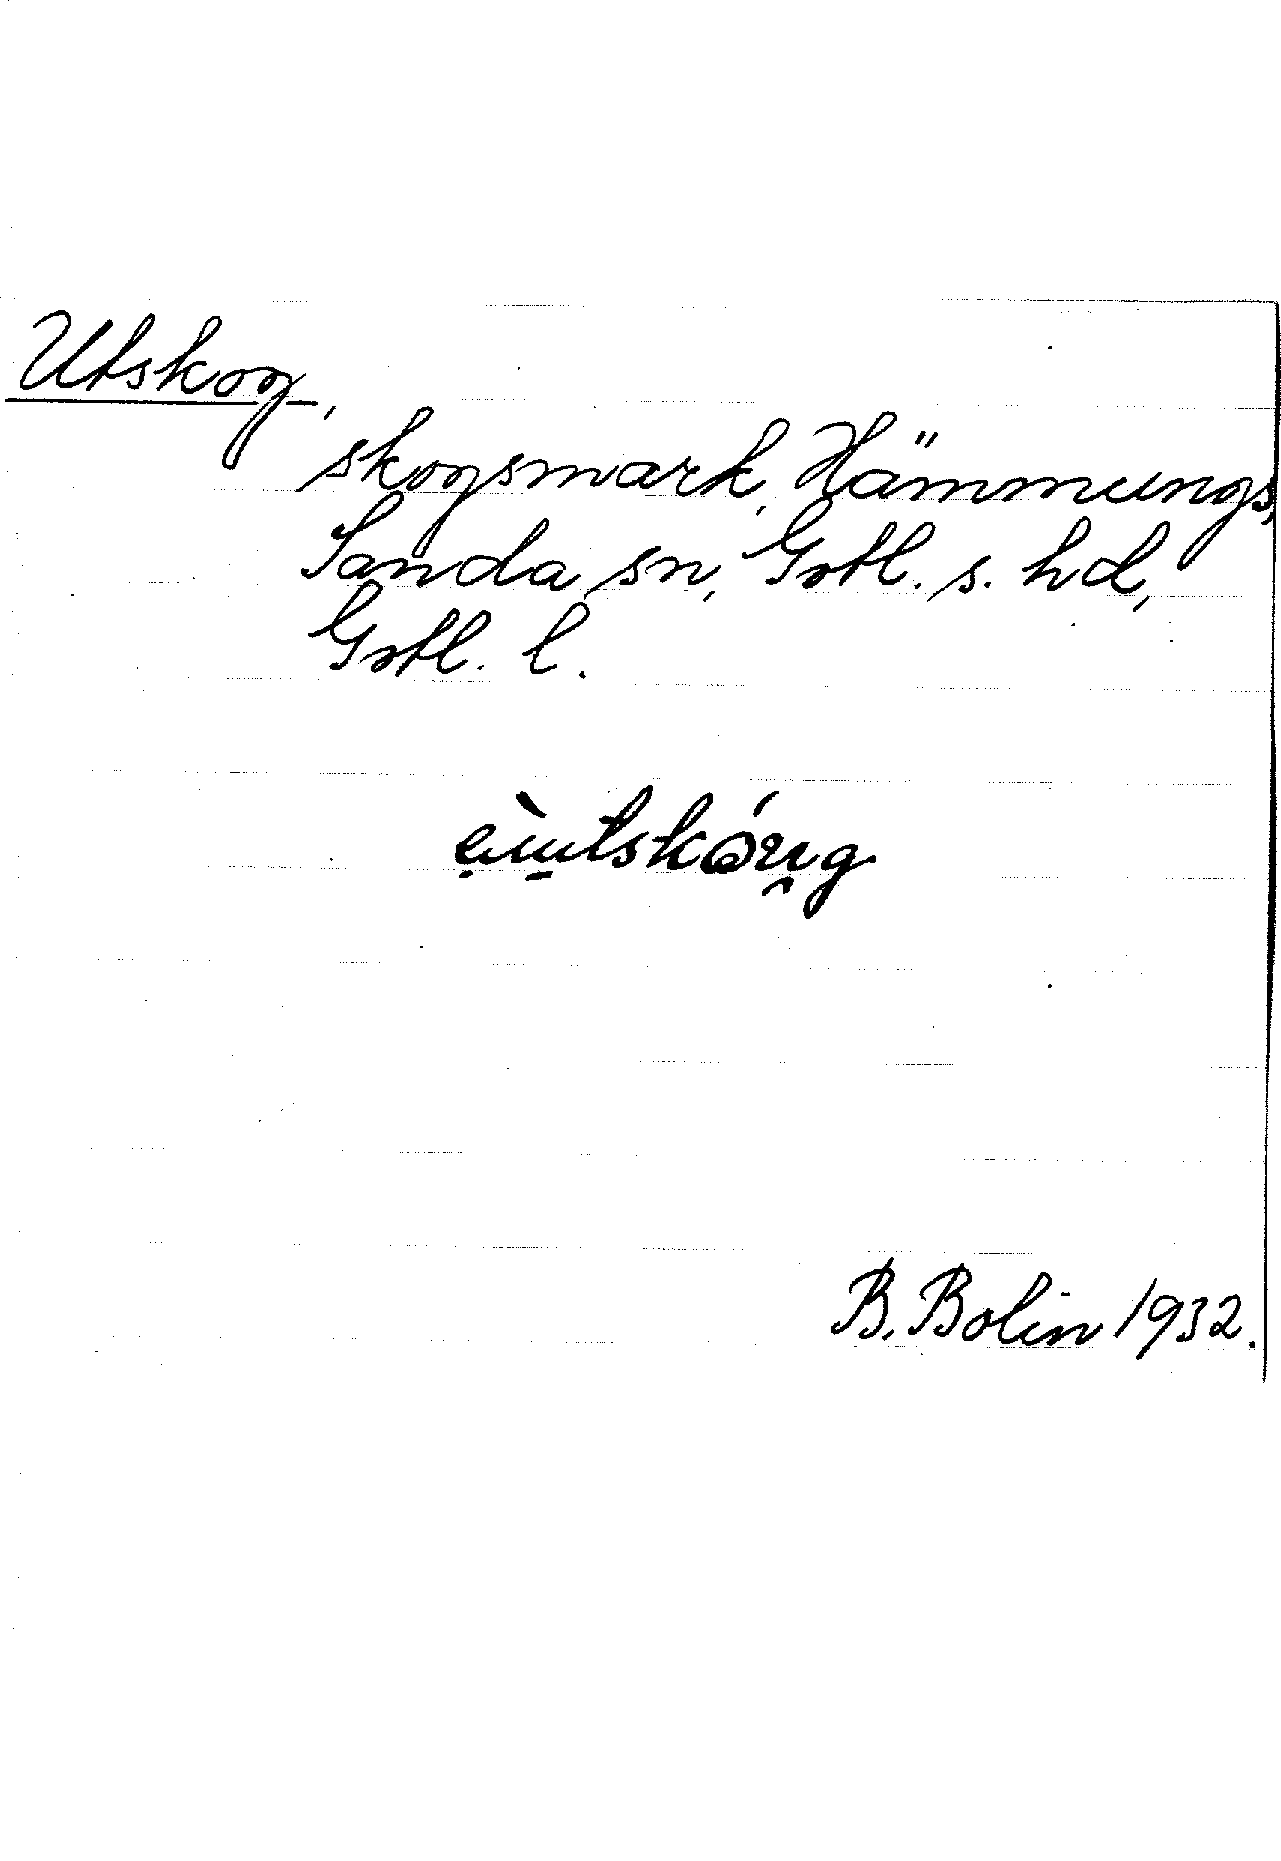 Utskog,
skogsmark, Hämmungs,
Sanda sn, Gotl. s. hd,
Gotl. l.
B. Bolin 1932.